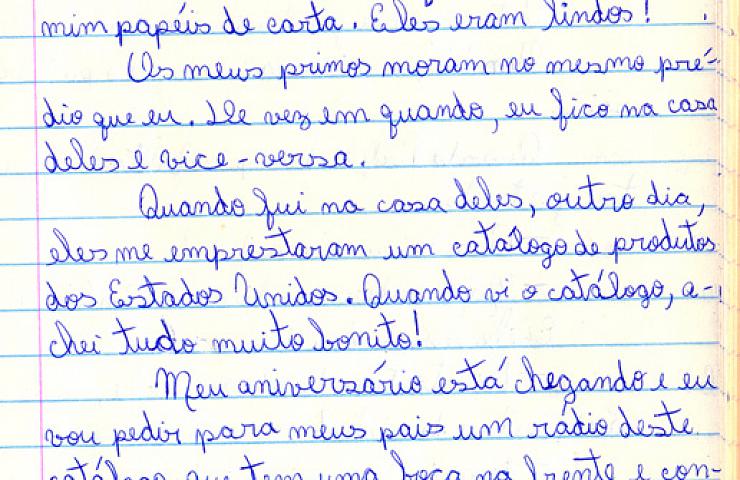 mim papéis de carta. Eles eram lindos!
Os meus primos moram no mesmo pré-
dio que eu. De vez em quando, eu fico na casa
deles e vice-versa.
Quando fui na casa deles, outro dia,
eles me emprestaram um catálogo de produtos
dos Estados Unidos. Quando vi o catálogo, a-
chei tudo muito bonito!
Meu aniversário está chegando e eu
vou pedir para meus pais um rádio deste
catálogo que tem uma boca na frente e con-